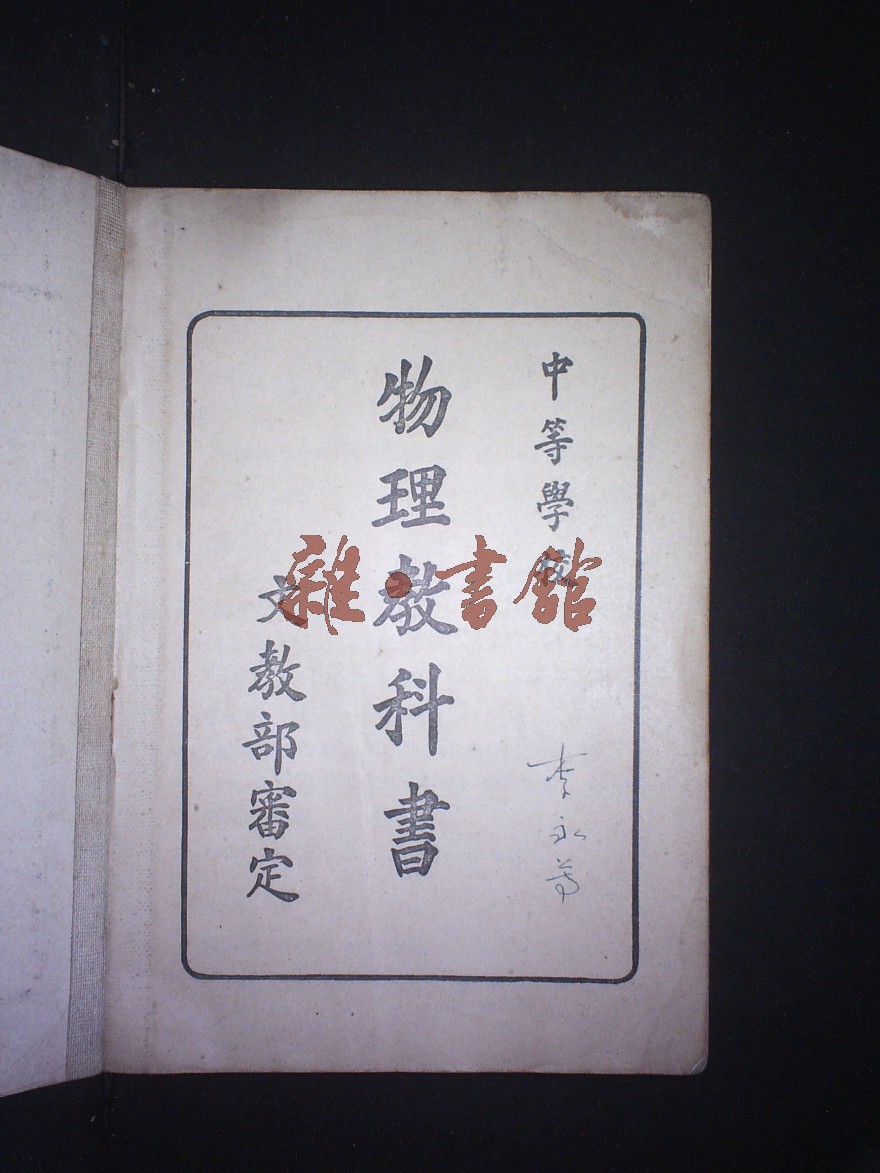 中等學校
物理教科書
文教部審定
李永
雜·書館